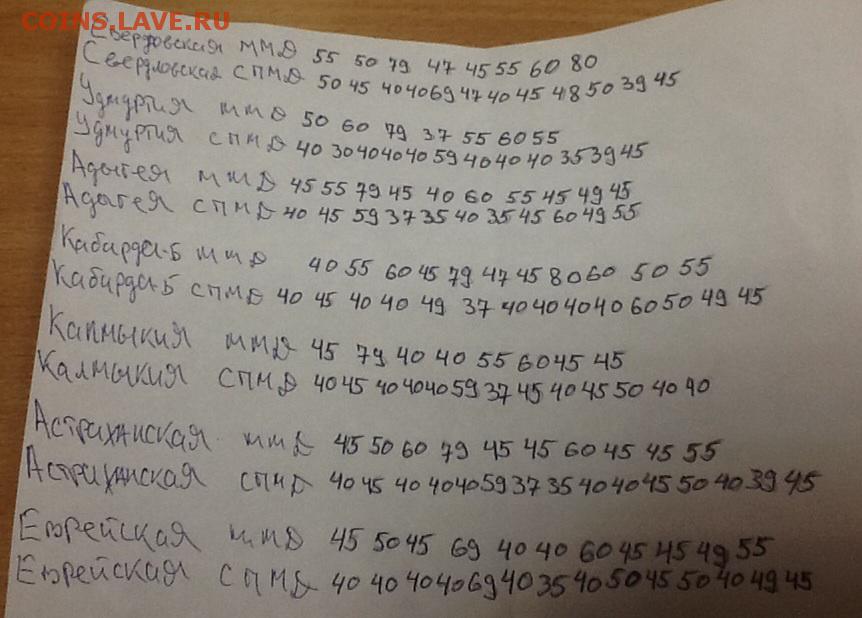 COINS.LAVE.RU
Свердовская ММД 55 50 79 47 45 55 60 80
Свердловская СПМД 50 45 40 40 69 47 40 45 48 50 39 45
Удмуртия ММД 50 60 79 37 55 60 55
Удмуртия СПМД 40 30 40 40 40 59 40 40 40 35 39 45
Адыгея ММД 45 55 79 45 40 60 55 45 49 45
Адыгея СПМД 40 45 59 37 35 40 35 45 60 49 55
Кабарда-Б ММД 40 55 60 45 79 47 45 80 60 50 55
Кабарда-Б СПМД 40 45 40 40 49 37 40 40 40 40 60 50 49 45
Калмыкия ММД 45 79 40 40 55 60 45 45
Калмыкия СПМД 40 45 40 40 40 59 37 45 40 45 50 40 40
Астраханская ММД 45 50 60 79 45 45 60 45 45 55
Астраханская СПМД 40 45 40 40 40 59 37 35 40 40 45 50 40 39 45
Еврейская ММД 45 50 45 69 40 40 60 45 45 49 55
Еврейская СПМД 40 40 40 40 69 40 35 40 50 45 50 40 49 45